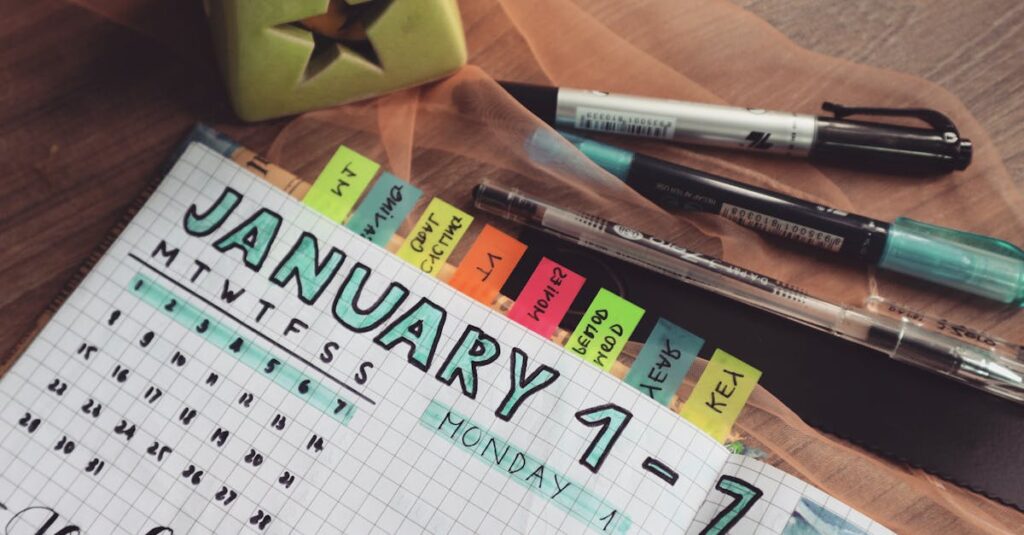 MT
GOAL
CYCLING
VT
MOVIES
PERIOD
MOOD
YEAR
KEY
JANUARY 1-7
M T W T F S S
1 2 3 4 5 6 7
8 9 10 11 12 13 14
15 16 17 18 19 20 21
22 23 24 25 26 27 28
29 30 31
MONDAY 1
8935001810339
8935001 810309